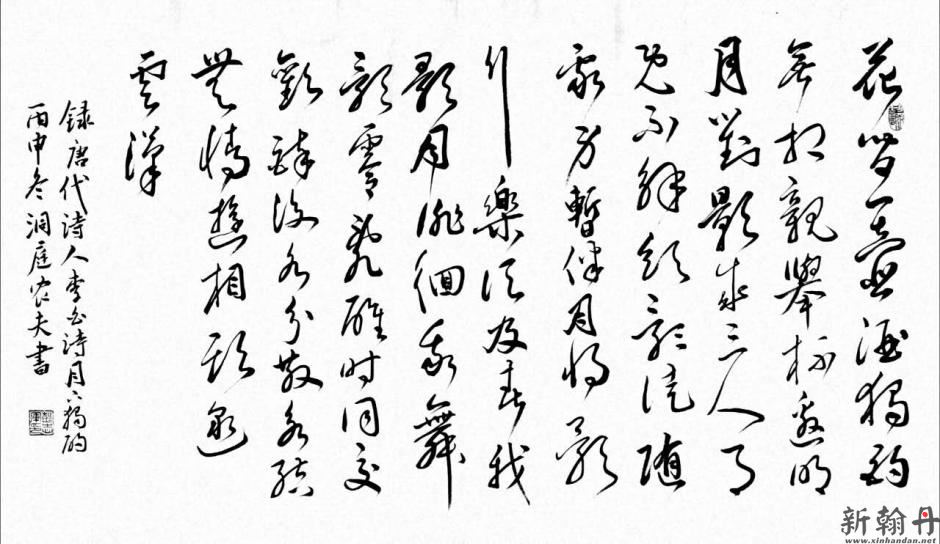 花間一壺酒獨酌
無相親舉杯邀明
月對影成三人月
既不解飲影徒隨
我身暫伴月將影
行樂須及春我
歌月徘徊我舞
影零亂醒時同交
歡醉後各分散永結
無情遊相期邈
雲漢
録唐代诗人李白诗月下獨酌
丙申冬洞庭农夫書
新翰丹
www.xinhandan.net